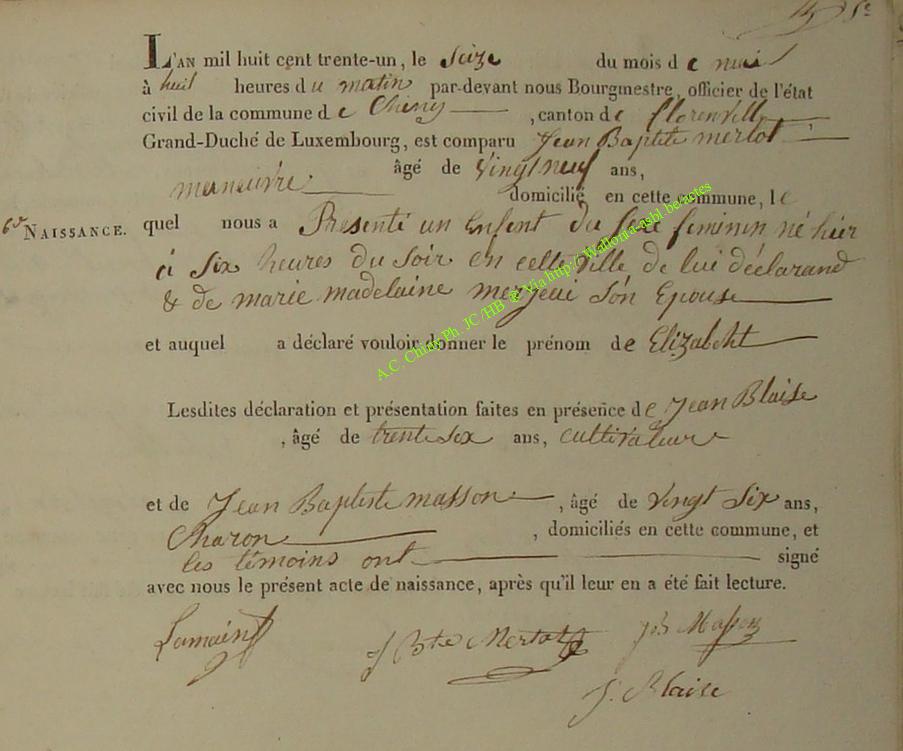 L'AN mil huit cent trente-un, le Seize du mois de mai
à huit heures du matin par-devant nous Bourgmestre, officier de l'état
civil de la commune de Chiny, canton de florenville
Grand-Duché de Luxembourg, est comparu Jean Baptiste merlot
âgé de vingt neuf ans,
maneuvre domicilié en cette commune, le
6e NAISSANCE. quel nous a Presenté un Enfent du sexe feminin né hier
à six heures du soir en cette ville de lui déclarand
& de marie madelaine son Epouse
et auquel a déclaré vouloir donner le prénom de Elizabeht
Lesdites déclaration et présentation faites en présence de Jean Blaise
, âgé de trente six ans, cultivateur
et de Jean Baptiste masson, âgé de vingt six ans,
Charon, domiciliés en cette commune, et
les témoins ont signé
avec nous le présent acte de naissance, après qu'il leur en a été fait lecture.
J Bte Merlot JB Masson
J. Blaise
A.C. Chiny Ph. JC /HB @ Via http://Wallonia-asbl.be/actes